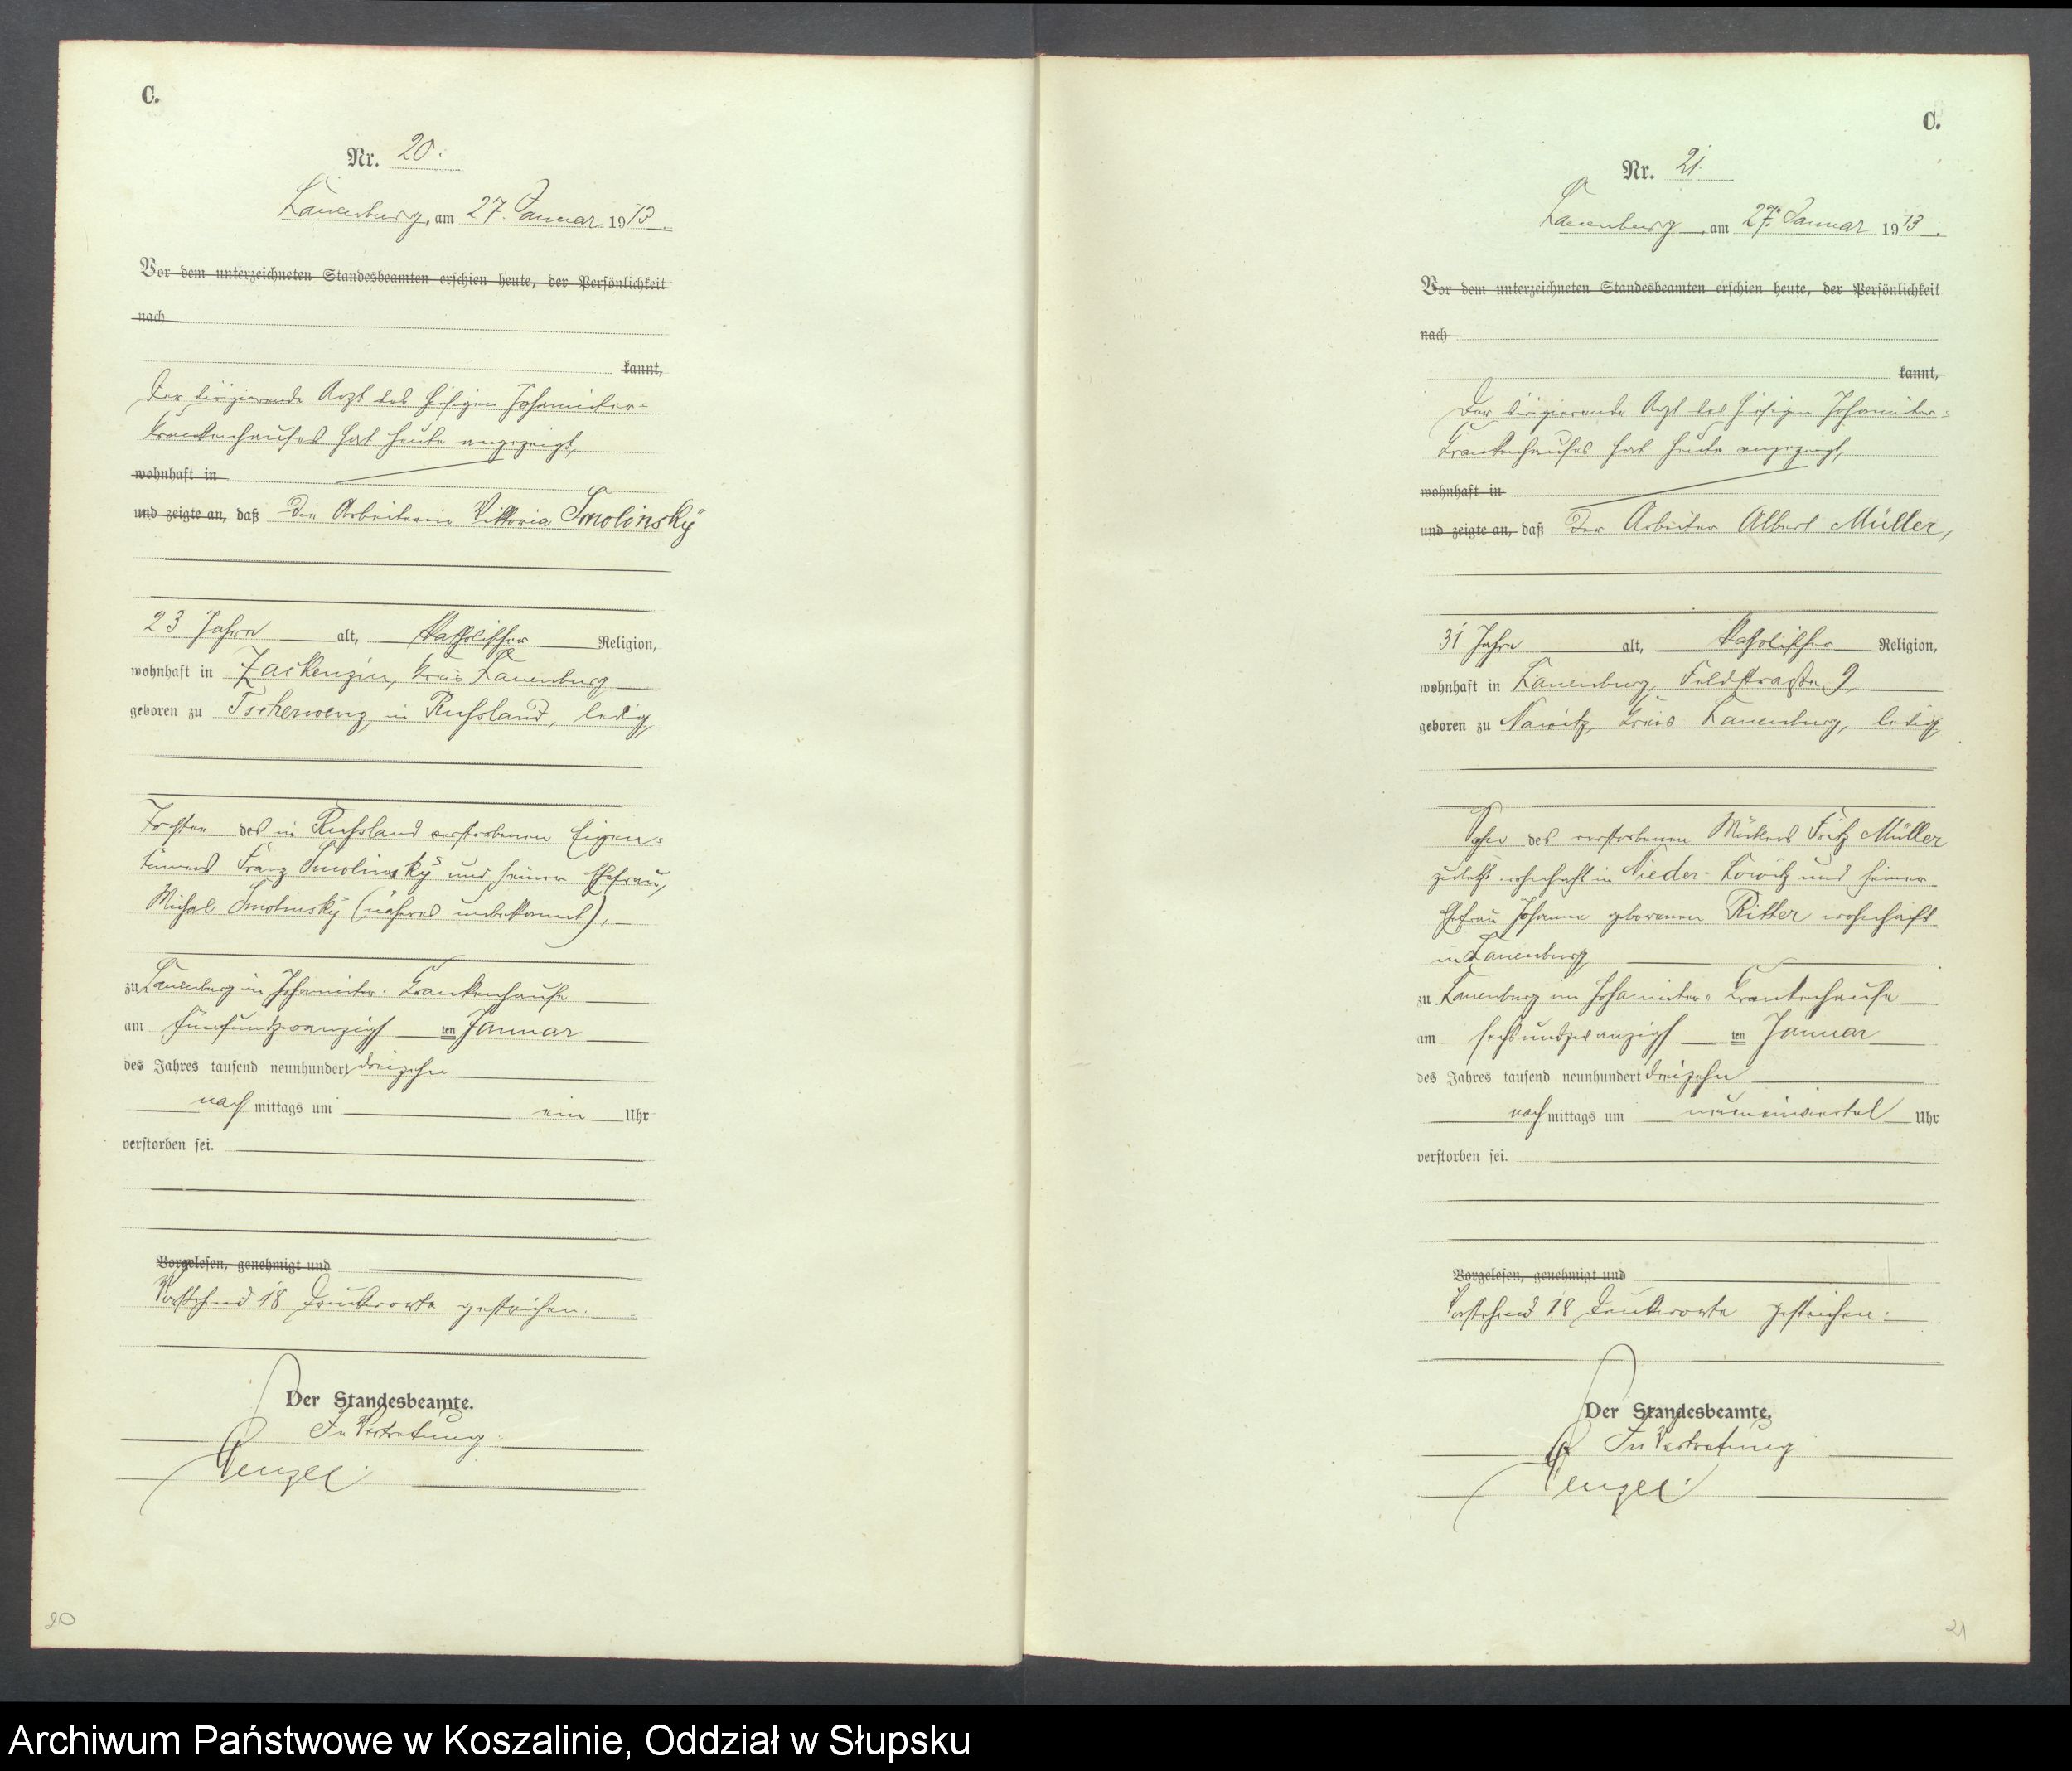 C.
Nr. 20.
Lauenburg, am 27. Januar 1913.
Vor dem unterzeichneten Standesbeamten erschien heute, der Persönlichkeit
nach
kannt,
Der dirigierende Arzt des hiesigen Johanniter=
krankenhauses hat heute angezeigt,
wohnhaft in
und zeigte an, daß die Arbeiterin Viktoria Smolinsky
23 Jahre alt, katholischer Religion,
wohnhaft in Zackenzin, Kreis Lauenburg
geboren zu Tscherwenz in Russland, ledig,
Tochter des in Russland verstorbenen Eigen=
tümers Franz Smolinsky und seiner Ehefrau,
Michal Smolinsky (näheres unbekannt),
zu Lauenburg im Johanniter-Krankenhause
am fünfundzwanzigsten Januar
des Jahres tausend neunhundert dreizehn
nachmittags um ein Uhr
verstorben sei.
Vorgelesen, genehmigt und
Vorstehend 18 Druckworte gestrichen.
Der Standesbeamte.
In Vertretung.
20
C.
Nr. 21.
Lauenburg, am 27. Januar 1913.
Vor dem unterzeichneten Standesbeamten erschien heute, der Persönlichkeit
nach
kannt,
Der dirigierende Arzt des hiesigen Johanniter=
Krankenhauses hat heute angezeigt,
wohnhaft in
und zeigte an, daß der Arbeiter Albert Müller,
31 Jahre alt, katholischer Religion,
wohnhaft in Lauenburg, Feldstraße 9,
geboren zu Nawitz, Kreis Lauenburg, ledig,
Sohn des verstorbenen Fritz Müller
zuletzt wohnhaft in Nieder-Lowitz und seiner
Ehefrau Johanna geborenen Ritter wohnhaft
in Lauenburg
zu Lauenburg im Johanniter-Krankenhause
am sechsundzwanzigsten Januar
des Jahres tausend neunhundert dreizehn
nachmittags um neuneinviertel Uhr
verstorben sei.
Vorgelesen, genehmigt und
Vorstehend 18 Druckworte gestrichen.
Der Standesbeamte.
In Vertretung
21
Archiwum Państwowe w Koszalinie, Oddział w Słupsku